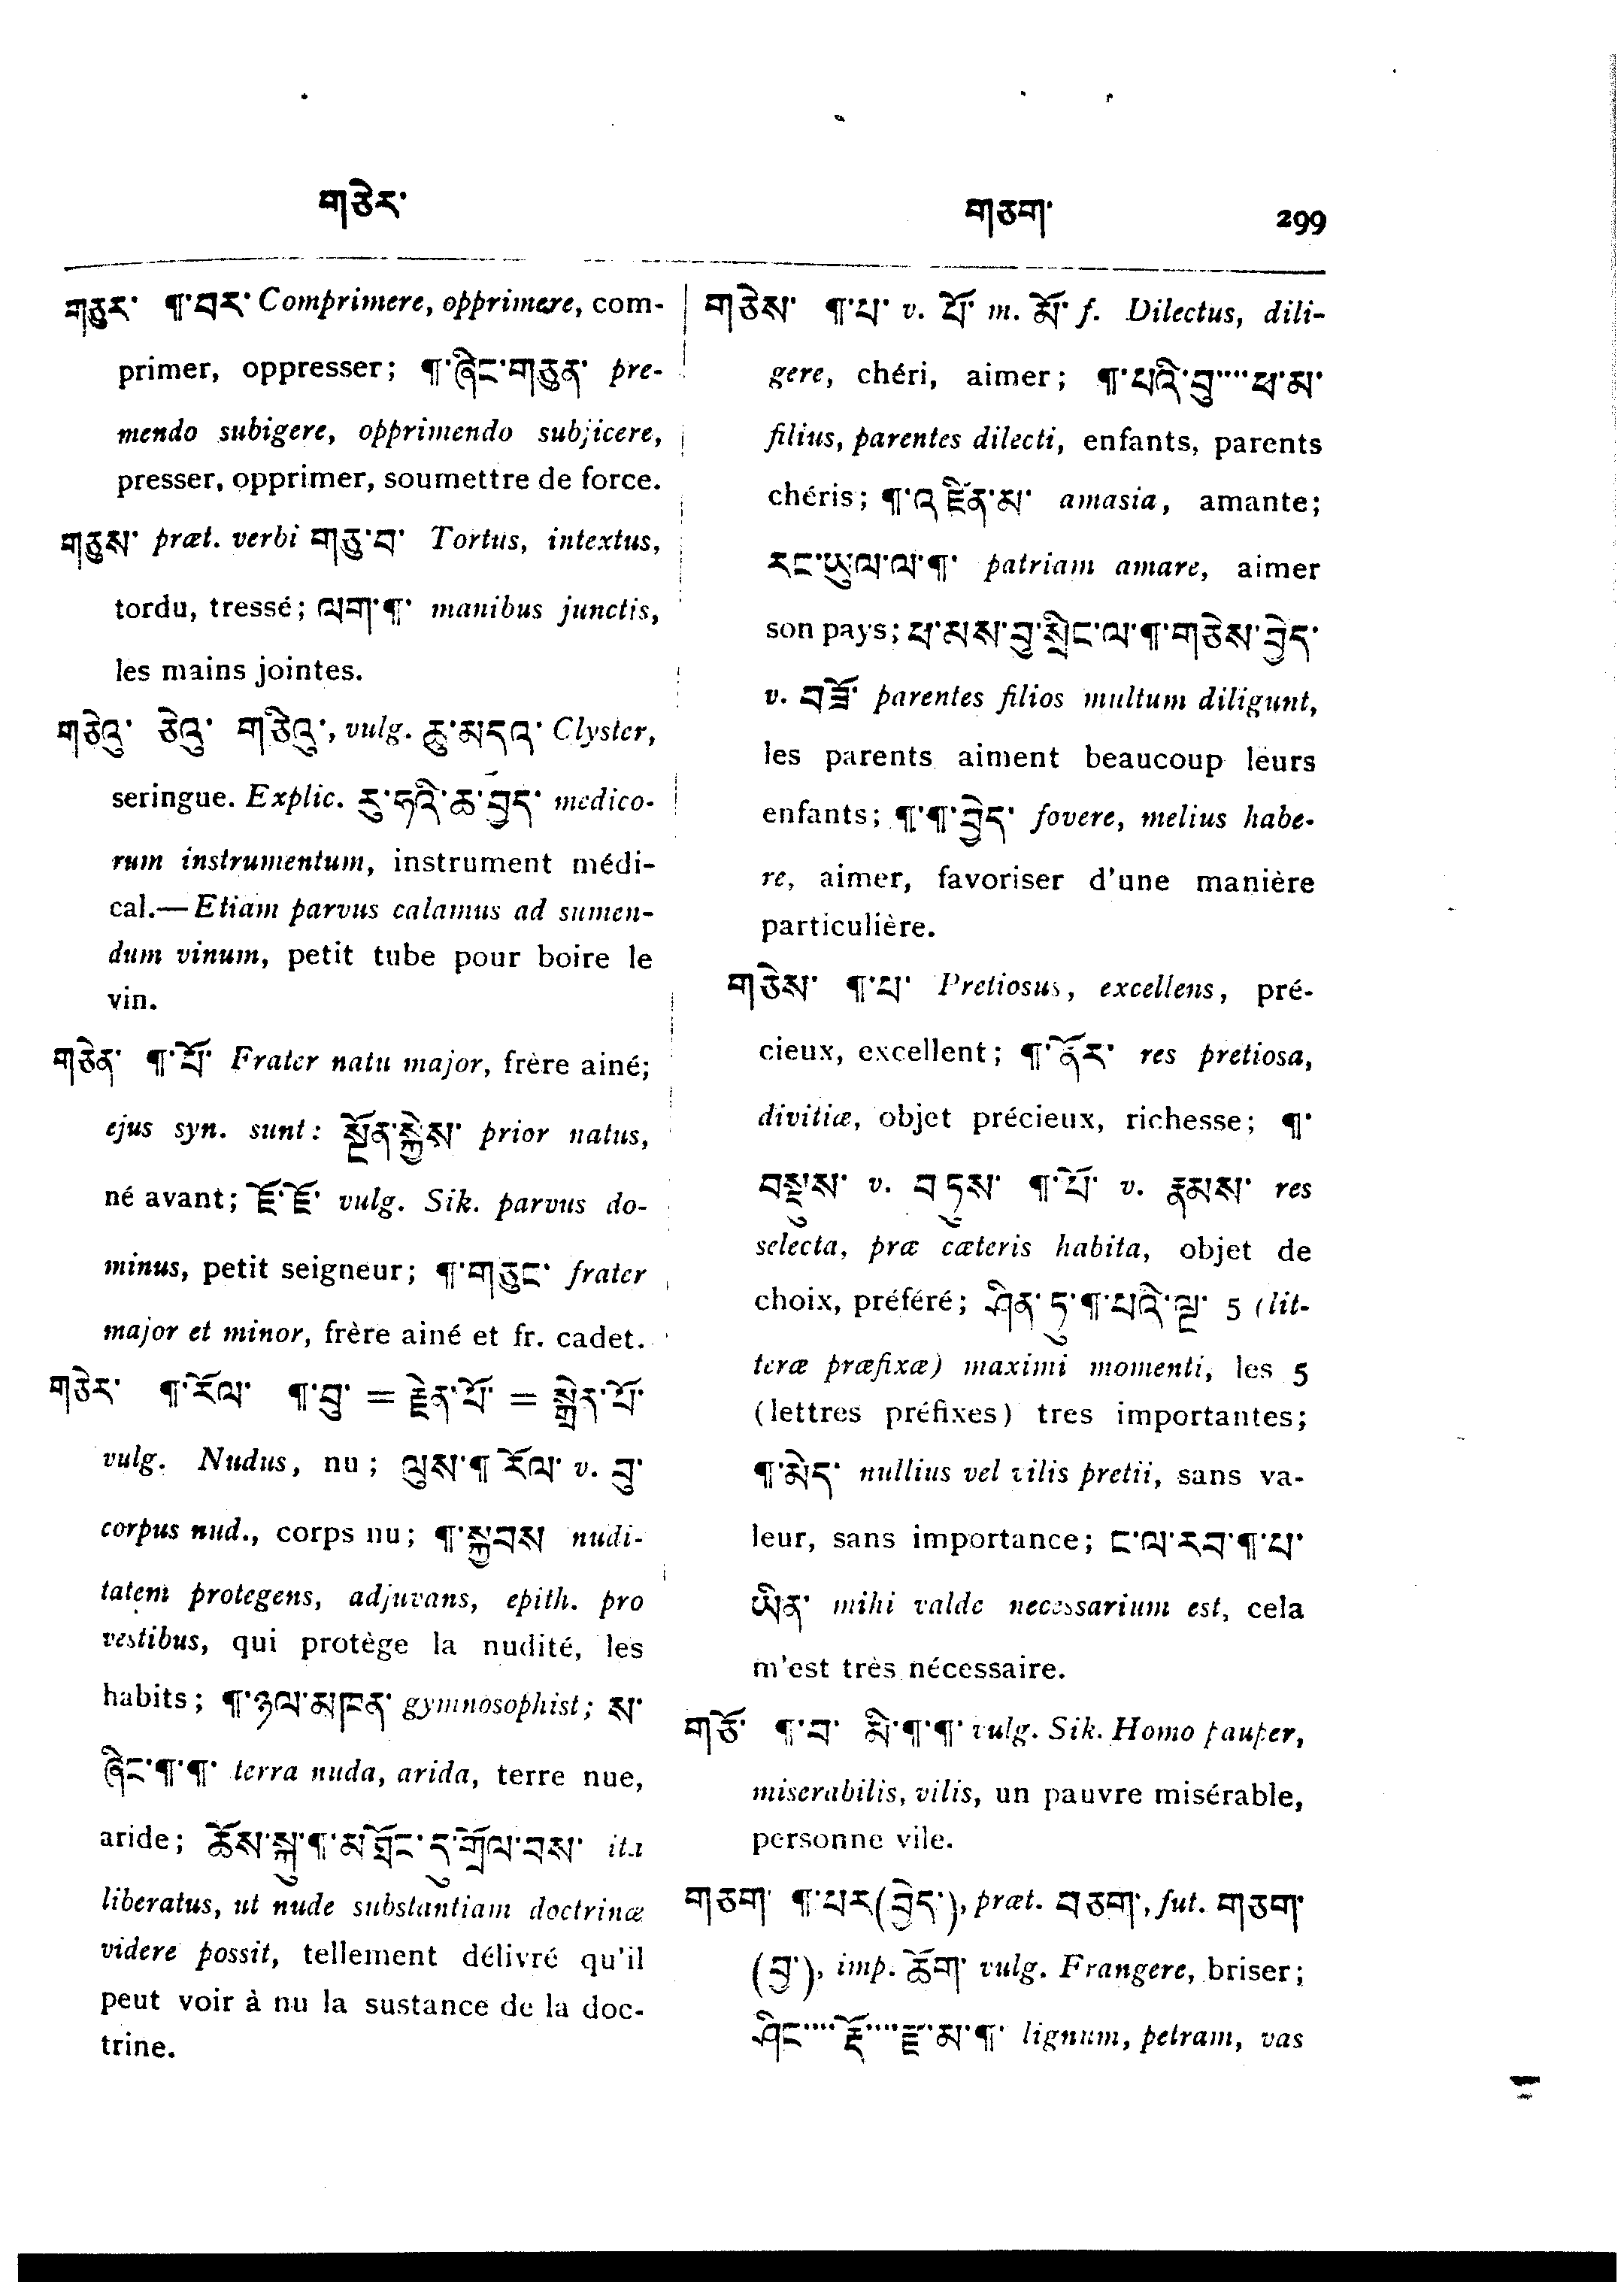 གཅེར་
གཅག་ 299
གཅུར་ ¶་བར་ Comprimere, opprimere, com-
primer, oppresser; ¶་ཞིང་གཅུན་ pre-
mendo subigere, opprimendo subjicere,
presser, opprimer, soumettre de force.
གཅུས་ præt. verbi གཅུ་བ་ Tortus, intextus,
tordu, tressé; ལག་¶་ manibus junctis,
les mains jointes.
གཅེའུ་ ཅེའུ་ གཅིའུ་, vulg. ཆུ་མདའ་ Clyster,
seringue. Explic. དུ་ཧའི་ཆ་བྱད་ medico-
rum instrumentum, instrument médi-
cal.—Etiam parvus calamus ad sumen-
dum vinum, petit tube pour boire le
vin.
གཅེན་ ¶་པོ་ Frater natu major, frère ainé;
ejus syn. sunt: སྔོན་སྐྱེས་ prior natus,
né avant; ཇོ་ཇོ་ vulg. Sik. parvus do-
minus, petit seigneur; ¶་གཅུང་ frater
major et minor, frère ainé et fr. cadet.
གཅེར་ ¶་རོལ་ ¶་བུ་ = རྗེན་པོ་ = སྒྲེན་པོ་
vulg. Nudus, nu; ལུས་¶ རོལ་ v. བུ་
corpus nud., corps nu; ¶་སྐྱབས nudi-
tatem protegens, adjuvans, epith. pro
vestibus, qui protège la nudité, les
habits; ¶་ཉལ་མཁན་ gymnosophist; ས་
ཞིང་¶་¶་ terra nuda, arida, terre nue,
aride; ཆོས་སྐུ་¶་མ་ཐོང་དུ་གྲོལ་བས་ ita
liberatus, ut nude substantiam doctrinæ
videre possit, tellement délivré qu'il
peut voir à nu la sustance de la doc-
trine.
གཅེས་ ¶་པ་ v. པོ་ m. མོ་ f. Dilectus, dili-
gere, chéri, aimer; ¶་པའི་བུ་་་་ཕ་མ་
filius, parentes dilecti, enfants, parents
chéris; ¶་འ ཛིན་མ་ amasia, amante;
རང་ཡུལ་ལ་¶་ patriam amare, aimer
son pays; ཕ་མས་བུ་སྲིང་ལ་¶་གཅེས་བྱེད་
v. བཟོ་ parentes filios multum diligunt,
les parents aiment beaucoup leurs
enfants; ¶་¶་བྱེད་ fovere, melius habe-
re, aimer, favoriser d'une manière
particulière.
གཅེས་ ¶་པ་ Pretiosus, excellens, pré-
cieux, excellent; ¶་ནོར་ res pretiosa,
divitiæ, objet précieux, richesse; ¶་
བསྡུས་ v. བཏུས་ ¶་པོ་ v. རྣམས་ res
selecta, præ cæteris habita, objet de
choix, préféré; ཤིན་ཏུ་¶་པའི་ལྔ་ 5 (lit-
teræ præfixæ) maximi momenti, les 5
(lettres préfixes) tres importantes;
¶་མེད་ nullius vel vilis pretii, sans va-
leur, sans importance; ང་ལ་རབ་¶་པ་
ཡིན་ mihi valde necessarium est, cela
m'est très nécessaire.
གཅོ་ ¶་བ་ མི་¶་¶་ vulg. Sik. Homo pauper,
miserabilis, vilis, un pauvre misérable,
personne vile.
གཅག་ ¶་པར (བྱེད་), præt. བཅག་, fut. གཅག་
(བྱ་), imp. ཆོག་ vulg. Frangere, briser;
ཤིང་་་་རྡོ་་་་རྫ་མ་¶་ lignum, petram, vas